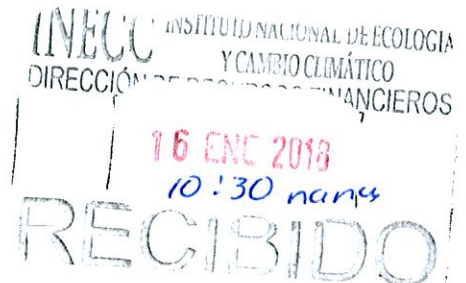 INECC INSTITUTO NACIONAL DE ECOLOGIA
Y CAMBIO CLIMÁTICO
DIRECCIÓN DE RECURSOS FINANCIEROS
16 ENE 2018
10:30
RECIBIDO